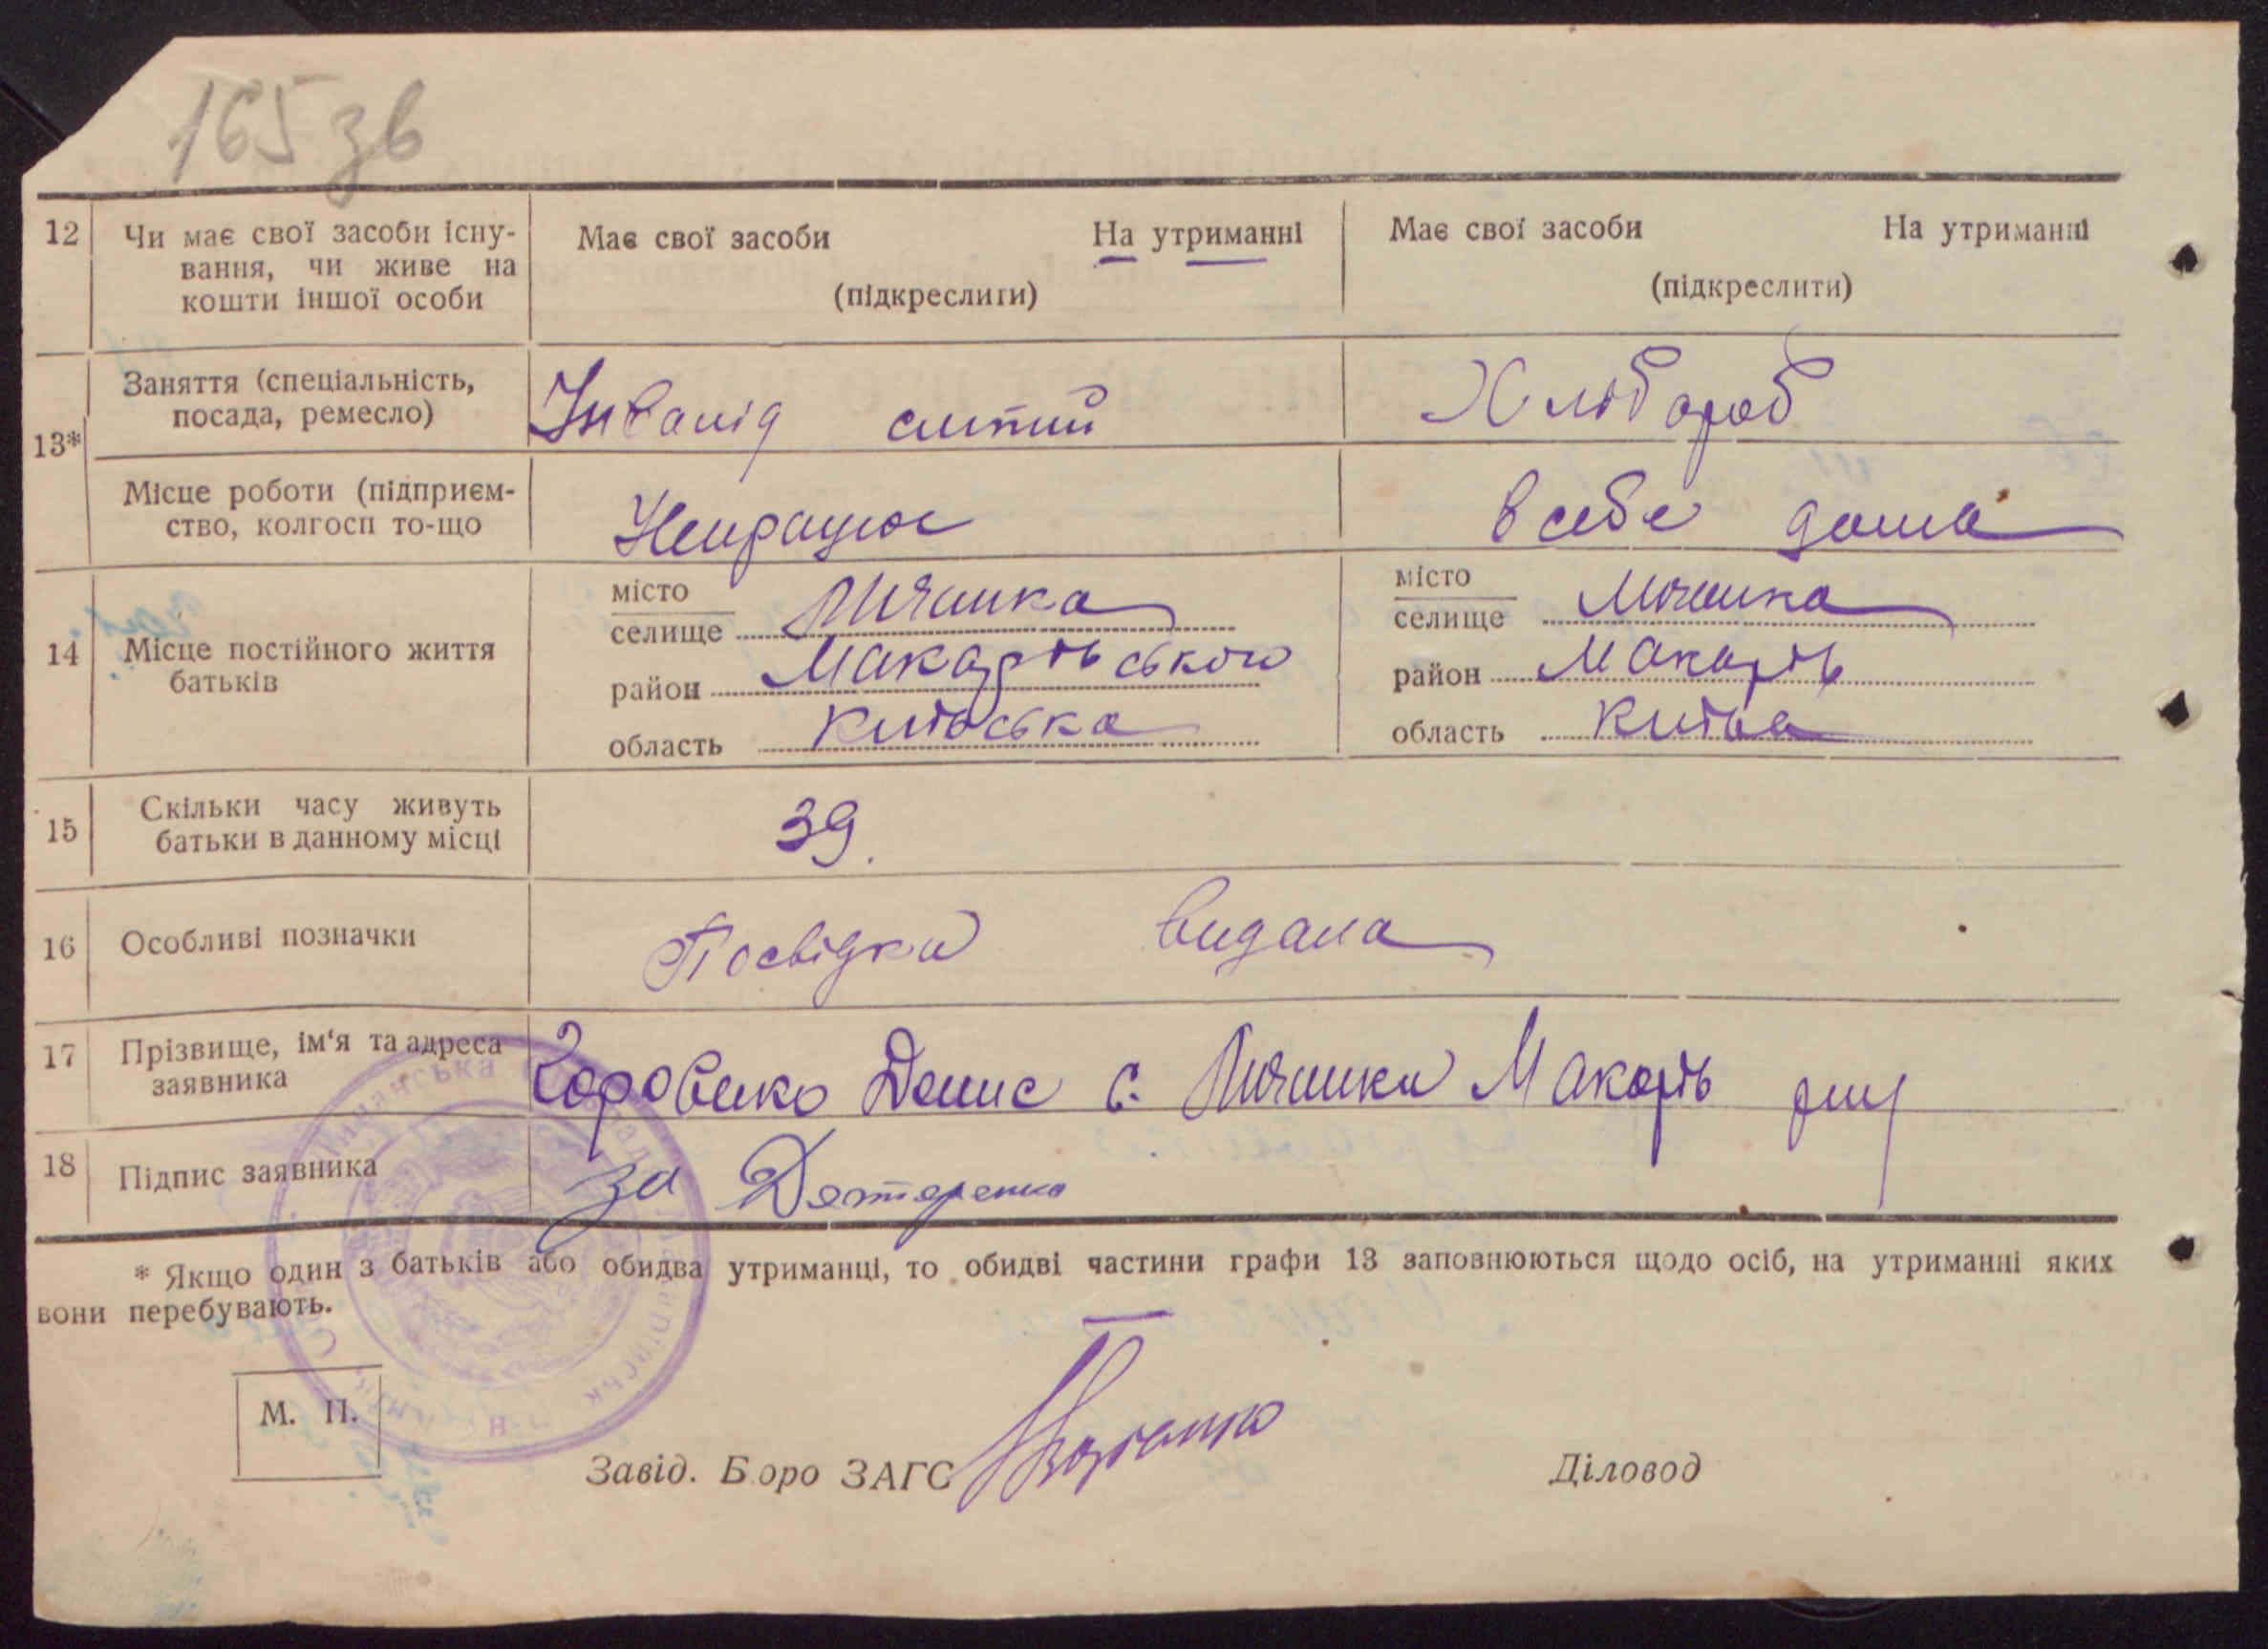 165 зв
12 Чи має свої засоби існу-
вання, чи живе на
кошти іншої особи
Має свої засоби На утриманні
(підкреслити)
Має свої засоби На утриманні
(підкреслити)
13*
Заняття (спеціальність,
посада, ремесло)
Інвалід сліпий
Хлібороб
Місце роботи (підприєм-
ство, колгосп то-що
Непрацює
В себе дома
14 Місце постійного життя
батьків
місто
селище Мичанка
район Макарівського
область Київська
місто
селище Мичанка
район Макарів
область Київа
15 Скільки часу живуть
батьки в данному місці
39.
16 Особливі позначки
Посвідка видана
17 Прізвище, ім‘я та адреса
заявника
Денис с. Мичанки Макарів
18 Підпис заявника
за Дехтаренко
* Якщо один з батьків або обидва утриманці, то обидві частини графи 13 заповнюються щодо осіб, на утриманні яких
вони перебувають.
М. П.
Завід. Бюро ЗАГС
Діловод